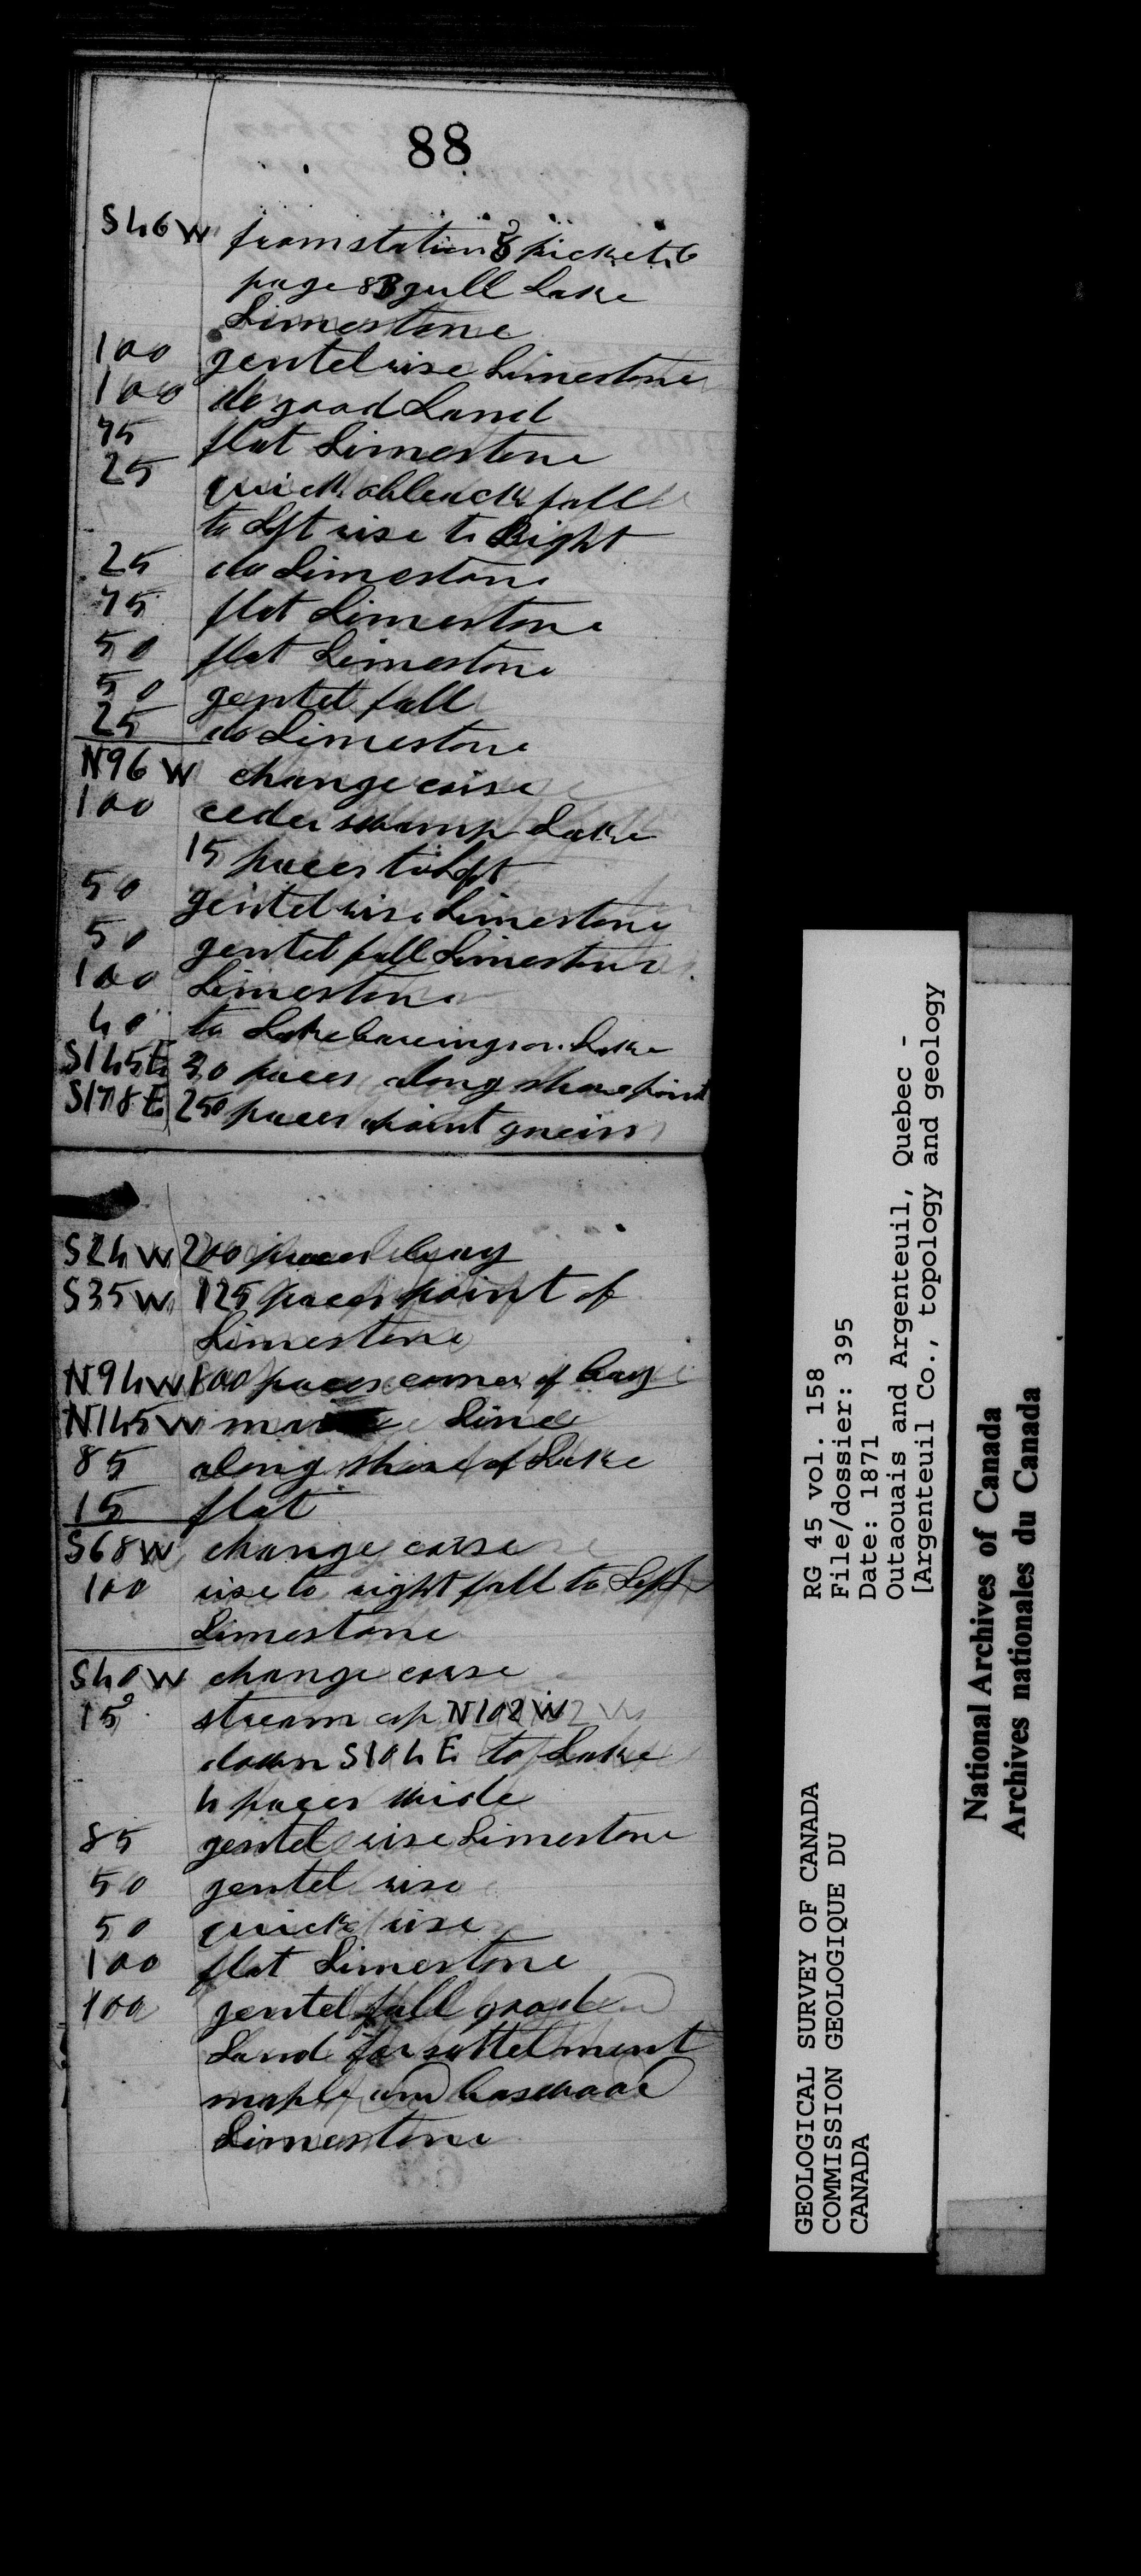 88
S46W from station 8 picket 6
page 83 gull Lake
Limestone
100 gentel rise Limestone
100 do good Land
75 flat Limestone
25 quick obleack fall
to Left rise to Right
25 do Limestone
75 flat Limestone
50 flat Limestone
50 gentel fall
25 do Limestone
N96W change corse
100 ceder swamp Lake
15 paces to Left
50 gentel rise Limestone
50 gentel fall Limestone
100 Limestone
40 to Lake bareings on Lake
S145E 30 paces along shore point
S178E 250 paces point gneiss
S24W 200 paces bay
S35W 125 paces point of
Limestone
N94W 100 paces corner of bay
N145W Line
85 along shore of Lake
15 flat
S68W change corse
100 rise to right fall to Left
Limestone
S40W change corse
15 stream up N102W
down S104E to Lake
4 paces wide
85 gentel rise Limestone
50 gentel rise
50 quick rise
100 flat Limestone
100 gentel fall good
Land for settelment
maple and baswood
Limestone
GEOLOGICAL SURVEY OF CANADA
COMMISSION GEOLOGIQUE DU
CANADA
RG 45 vol. 158
File/dossier: 395
Date: 1871
Outaouais and Argenteuil, Quebec -
[Argenteuil Co., topology and geology
National Archives of Canada
Archives nationales du Canada